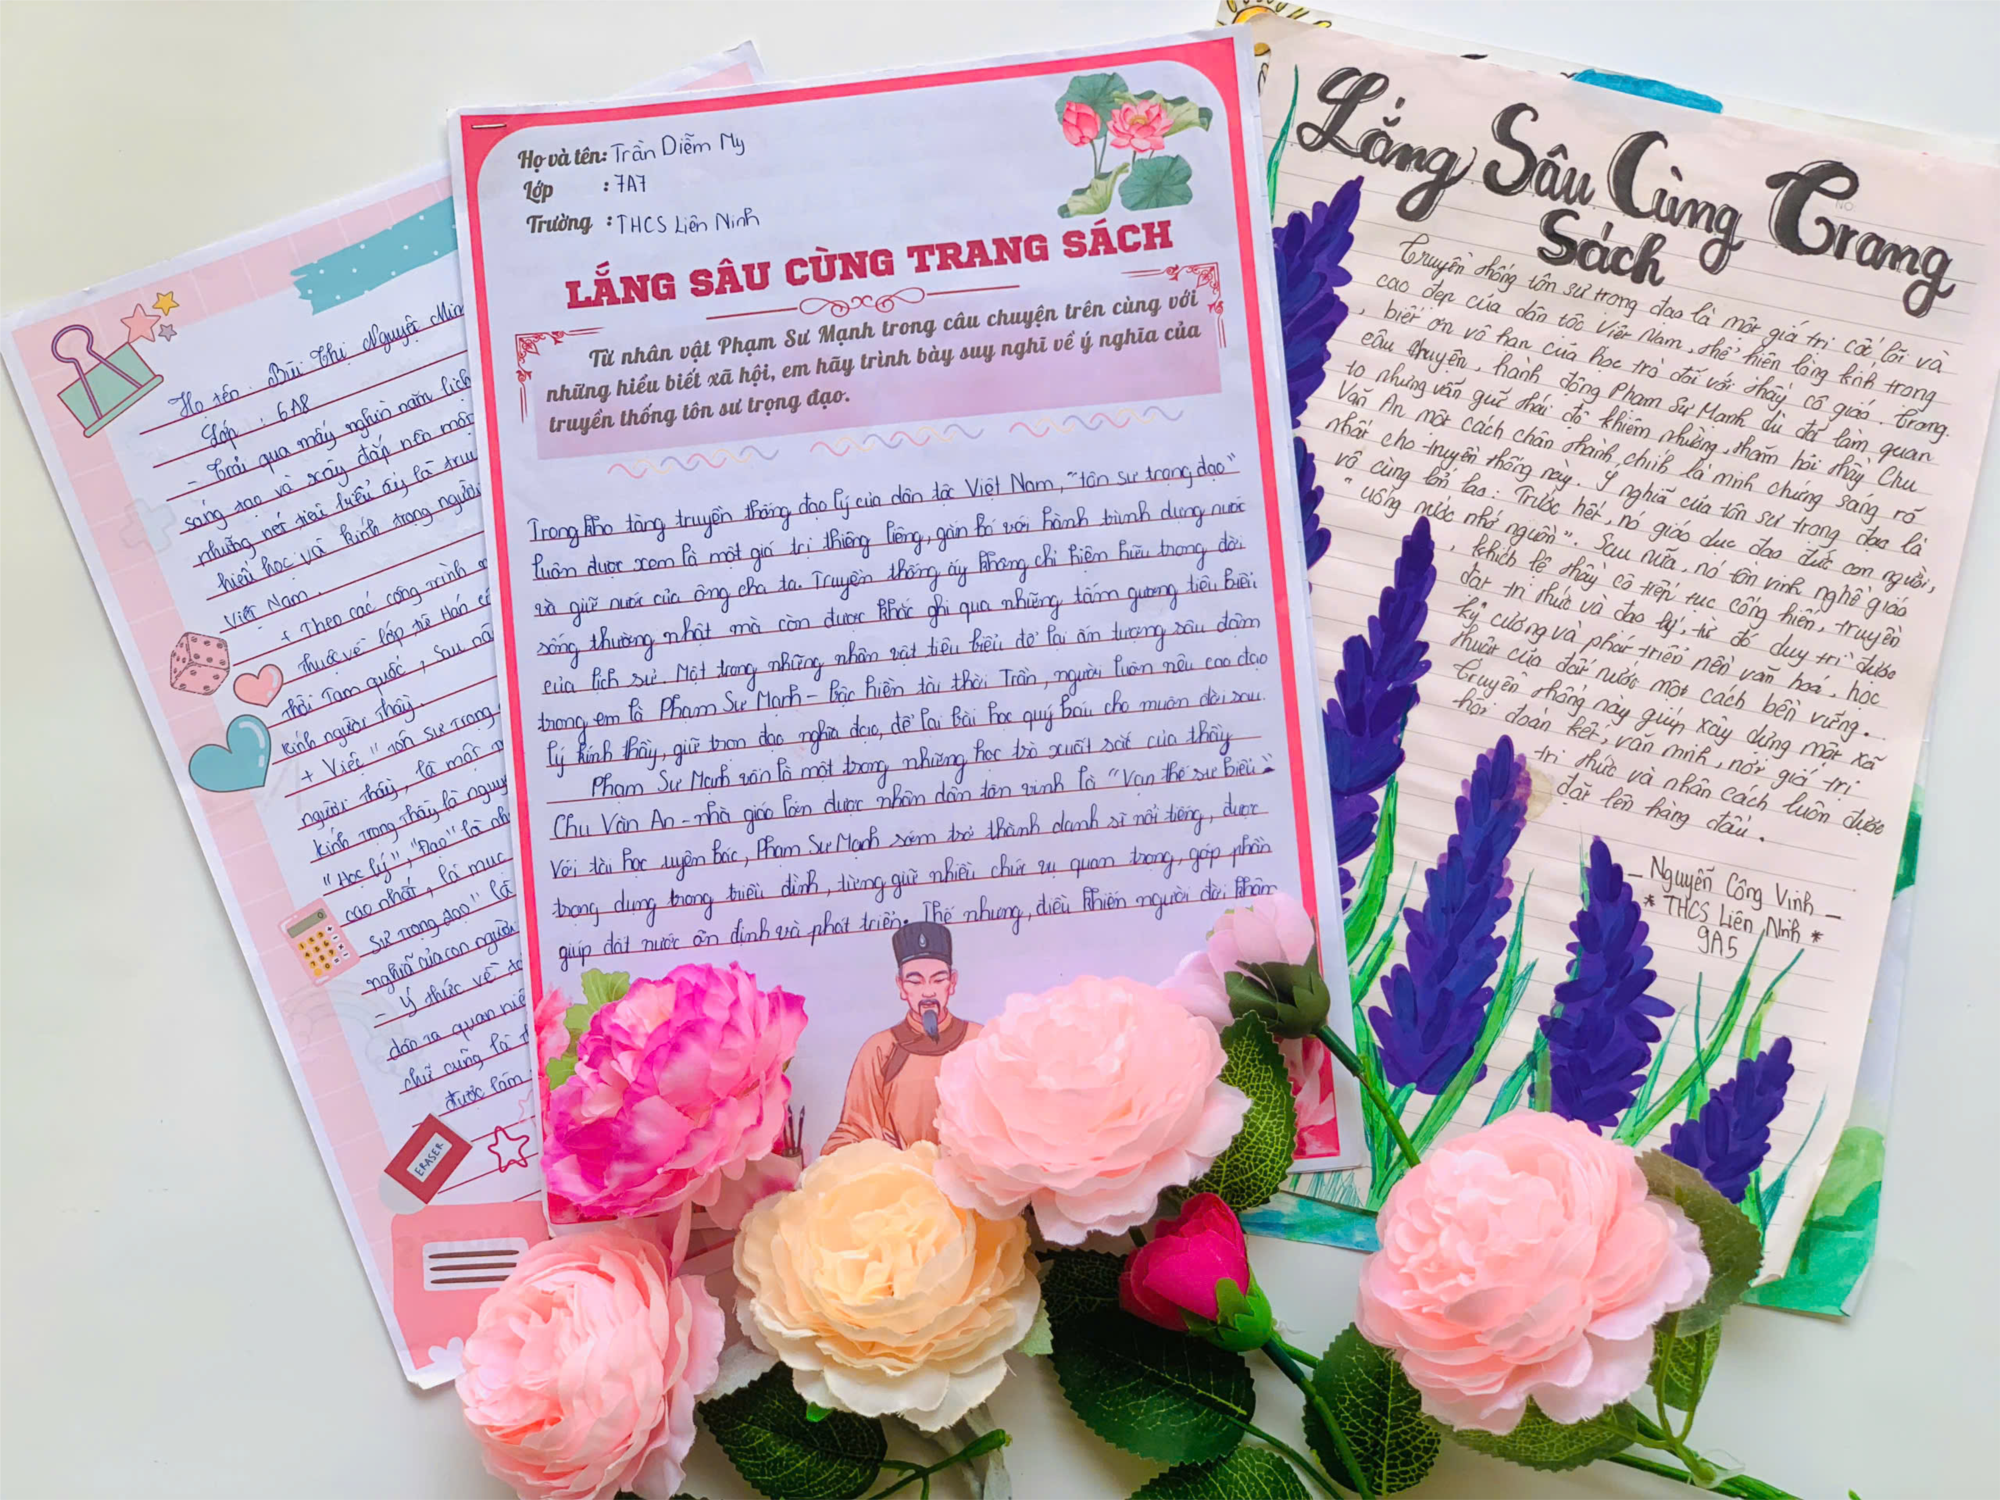 Họ tên : Bùi Thị Nguyệt Min
Lớp : 6A8
- Trải qua mấy nghìn năm lịch
sáng tạo và xây đắp nên một
những nét tiêu biểu ấy là tru
hiếu học và kính trọng người
Việt Nam.
+ Theo các công trình
thuộc về lớp từ Hán
thời Tam quốc, sau nà
kính người thầy.
+ Việc "Tôn sư trọng
người thầy, là một
kính trọng thầy là nguy
"Học lý", "Đạo" là nh
cao nhất, là mục
sư trọng đạo" là
nghĩa của con người
- Ý thức về t
dân ta quan niệ
chữ cũng là t
được làm
ERASER
Họ và tên: Trần Diễm My
Lớp : 7A7
Trường : THCS Liên Ninh
LẮNG SÂU CÙNG TRANG SÁCH
Từ nhân vật Phạm Sư Mạnh trong câu chuyện trên cùng với
những hiểu biết xã hội, em hãy trình bày suy nghĩ về ý nghĩa của
truyền thống tôn sư trọng đạo.
Trong kho tàng truyền thống đạo lý của dân tộc Việt Nam, "tôn sư trọng đạo"
luôn được xem là một giá trị thiêng liêng, gắn bó với hành trình dựng nước
và giữ nước của ông cha ta. Truyền thống ấy không chỉ hiện hữu trong đời
sống thường nhật mà còn được khắc ghi qua những tấm gương tiêu biểu
của lịch sử. Một trong những nhân vật tiêu biểu để lại ấn tượng sâu đậm
trong em là Phạm Sư Mạnh - bậc hiền tài thời Trần, người luôn nêu cao đạo
lý kính thầy, giữ trọn đạo nghĩa đạo, để lại bài học quý báu cho muôn đời sau.
Phạm Sư Mạnh vốn là một trong những học trò xuất sắc của thầy
Chu Văn An - nhà giáo lớn được nhân dân tôn vinh là "Vạn thế sư biểu".
Với tài học uyên bác, Phạm Sư Mạnh sớm trở thành danh sĩ nổi tiếng, được
trọng dụng trong triều đình, từng giữ nhiều chức vụ quan trọng, góp phần
giúp đất nước ổn định và phát triển. Thế nhưng, điều khiến người đời khâm
Lắng Sâu Cùng Trang
Sách
Truyền thống tôn sư trọng đạo là một giá trị cốt lõi và
cao đẹp của dân tộc Việt Nam, thể hiện lòng kính trọng
, biết ơn vô hạn của học trò đối với thầy cô giáo. Trong
câu chuyện, hành động Phạm Sư Mạnh dù đã làm quan
to nhưng vẫn giữ thái độ khiêm nhường, thăm hỏi thầy Chu
Văn An một cách chân thành chính là minh chứng sáng rõ
nhất cho truyền thống này. Ý nghĩa của tôn sư trọng đạo là
vô cùng lớn lao: Trước hết, nó giáo dục đạo đức con người,
" uống nước nhớ nguồn". Sau nữa, nó tôn vinh nghề giáo
, khích lệ thầy cô tiếp tục cống hiến, truyền
đạt tri thức và đạo lý, từ đó duy trì được
kỷ cương và phát triển nền văn hoá, học
thuật của đất nước một cách bền vững.
Truyền thống này giúp xây dựng một xã
hội đoàn kết, văn minh, nơi giá trị
tri thức và nhân cách luôn được
đặt lên hàng đầu.
- Nguyễn Công Vinh -
* THCS Liên Ninh *
9A5